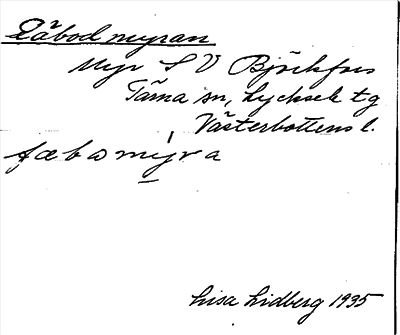 Fäbodmyran
Myr S V Björkfors
Tärna sn, Lycksele tg
Västerbottens l.
fæbomyra
Lisa Lidberg 1935